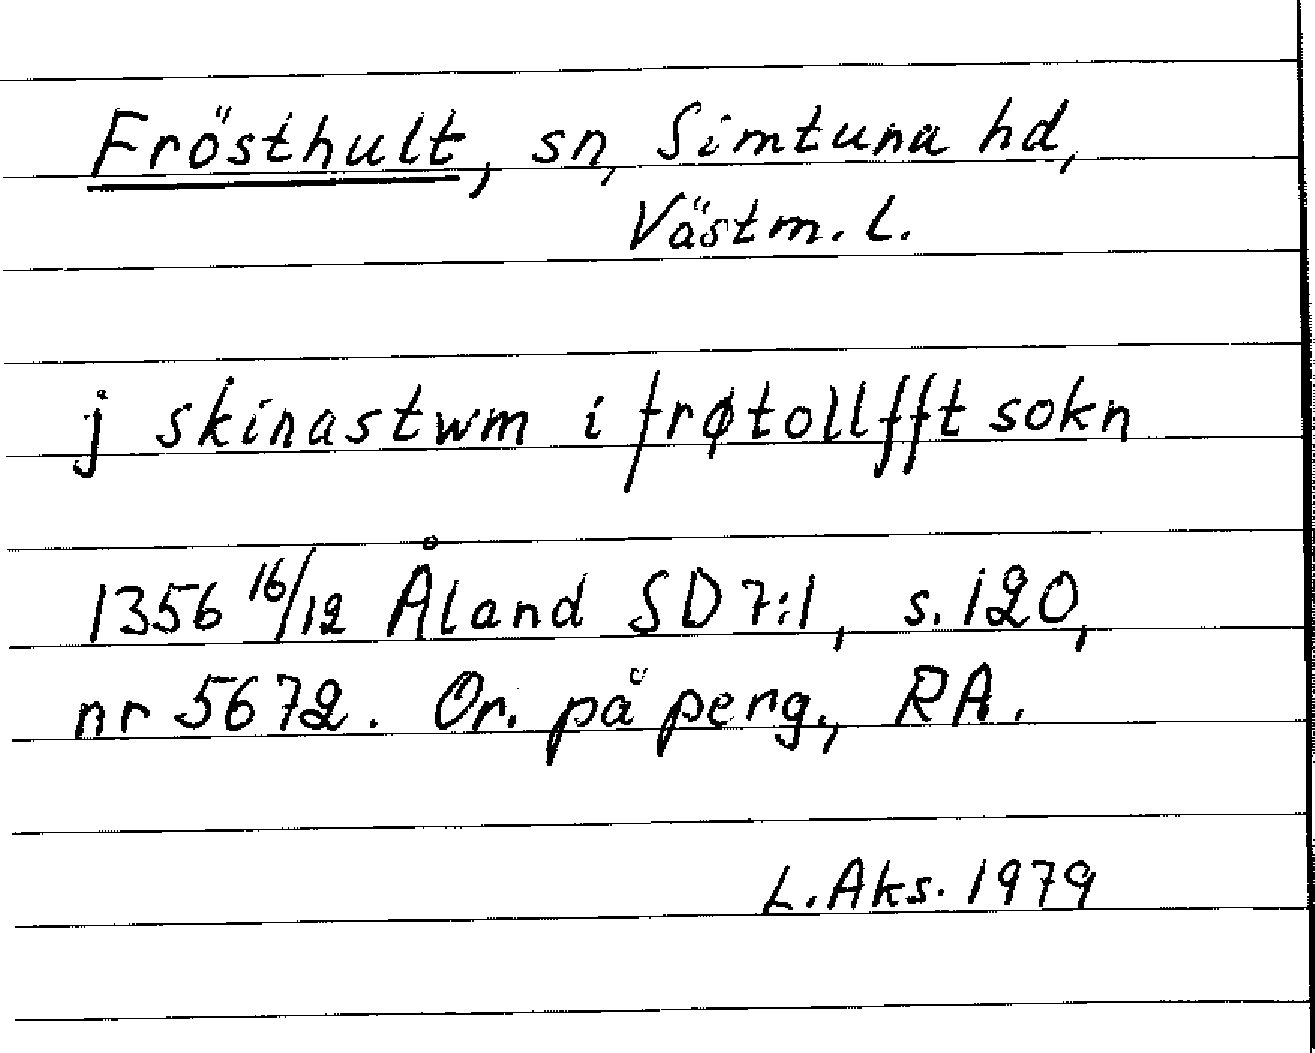 Frösthult, sn, Simtuna hd,
Västm. l.
j skinastwm i frøtollfft sokn
1356 16/12 Åland SD 7:1, s. 120,
nr 5672. Or. på perg., RA.
L. Aks. 1979